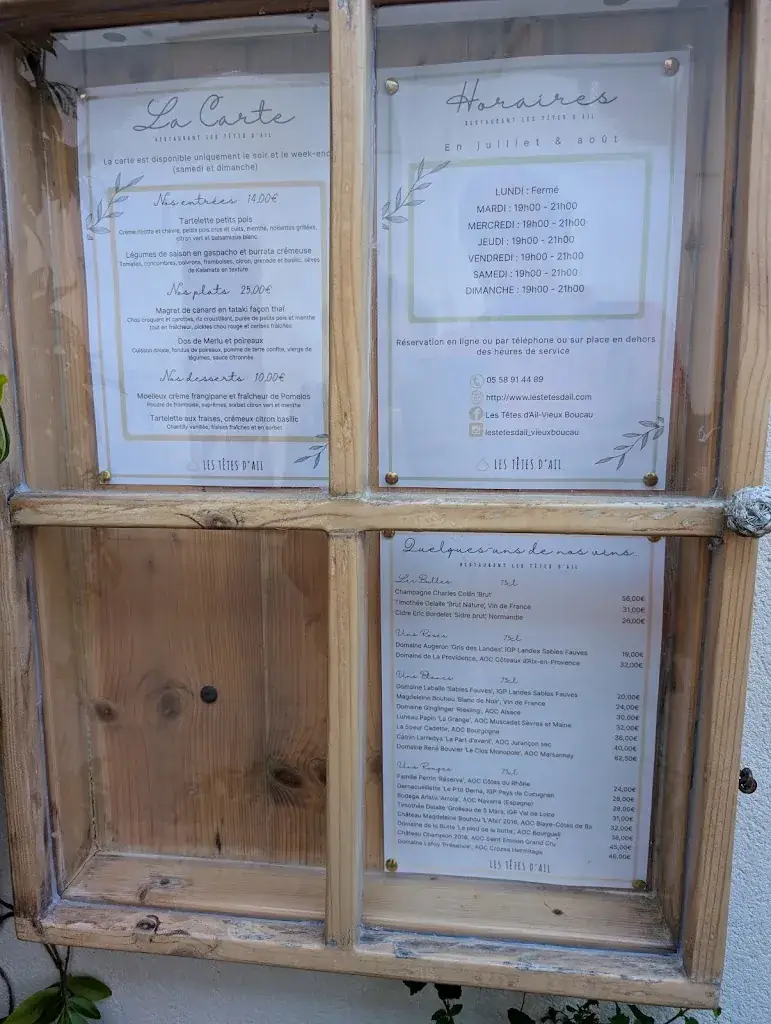 La Carte
RESTAURANT LES TÊTES D'AIL
La carte est disponible uniquement le soir et le week-end
(samedi et dimanche)
Nos entrées 14,00€
Tartelette petits pois
Crème ricotte et chèvre, petits pois crus et cuits, menthe, noisettes grillées,
citron vert et balsamique blanc
Légumes de saison en gaspacho et burrata crémeuse
Tomates, concombres, poivrons, framboises, citron, grenade et basilic, olives
de Kalamata en texture
Nos plats 25,00€
Magret de canard en tataki façon thaï
Chou croquant et carottes, riz croustillant, purée de petits pois et menthe
tout en fraîcheur, pickles chou rouge et cerises fraîches
Dos de Merlu et poireaux
Cuisson douce, fondue de poireaux, pomme de terre confite, vierge de
légumes, sauce citronnée
Nos desserts 10,00€
Moelleux crème frangipane et fraîcheur de Pomelos
suprêmes, sorbet citron vert et menthe
Tartelette aux fraises, crémeux citron basilic
Chantilly vanillée, fraises fraîches et en sorbet
LES TÊTES D'AIL
Horaires
RESTAURANT LES TÊTES D'AIL
En juillet & août
LUNDI : Fermé
MARDI : 19h00 - 21h00
MERCREDI : 19h00 - 21h00
JEUDI : 19h00 - 21h00
VENDREDI : 19h00 - 21h00
SAMEDI : 19h00 - 21h00
DIMANCHE : 19h00 - 21h00
Réservation en ligne ou par téléphone ou sur place en dehors
des heures de service
05 58 91 44 89
http://www.lestetesdail.com
Les Têtes d'Ail-Vieux Boucau
lestetesdail_vieuxboucau
LES TÊTES D'AIL
Quelques-uns de nos vins
RESTAURANT LES TÊTES D'AIL
Les Bulles 75cl
Champagne Charles Collin 'Brut' 56,00€
Timothée Delalle 'Brut Nature', Vin de France 31,00€
Cidre Eric Bordelet 'Sidre brut', Normandie 26,00€
Vins Rosés 75cl
Domaine Augeron 'Gris des Landes' IGP Landes Sables Fauves 19,00€
Domaine de La Providence, AOC Côteaux d'Aix-en-Provence 32,00€
Vins Blancs 75cl
Domaine Laballe 'Sables Fauves', IGP Landes Sables Fauves 20,00€
Magdeleine Bouhou 'Blanc de Noir', Vin de France 24,00€
Domaine Ginglinger 'Riesling', AOC Alsace 30,00€
Luneau Papin 'La Grange', AOC Muscadet Sèvres et Maine 32,00€
La Soeur Cadette, AOC Bourgogne 36,00€
Camin Larredya 'La Part d'avant', AOC Jurançon sec 40,00€
Domaine René Bouvier 'Le Clos Monopole', AOC Marsannay 62,50€
Vins Rouges 75cl
Famille Perrin 'Réserva', AOC Côtes du Rhône 24,00€
'Le P'tit Derna, IGP Pays de Cucugnan 28,00€
Bodega Aristu 'Arrola', AOC Navarra (Espagne) 29,00€
Timothée Delalle 'Grolleau de 5 Mars, IGP Val de Loire 31,00€
Château Magdeleine Bouhou 2016, AOC Blaye-Côtes de Bx 32,00€
Domaine de la Butte 'Le pied de la butte', AOC Bourgueil 38,00€
Château Champion 2016, AOC Saint Emilion Grand Cru 45,00€
Domaine Lafoy 'Présence', AOC Crozes Hermitage 46,00€
LES TÊTES D'AIL